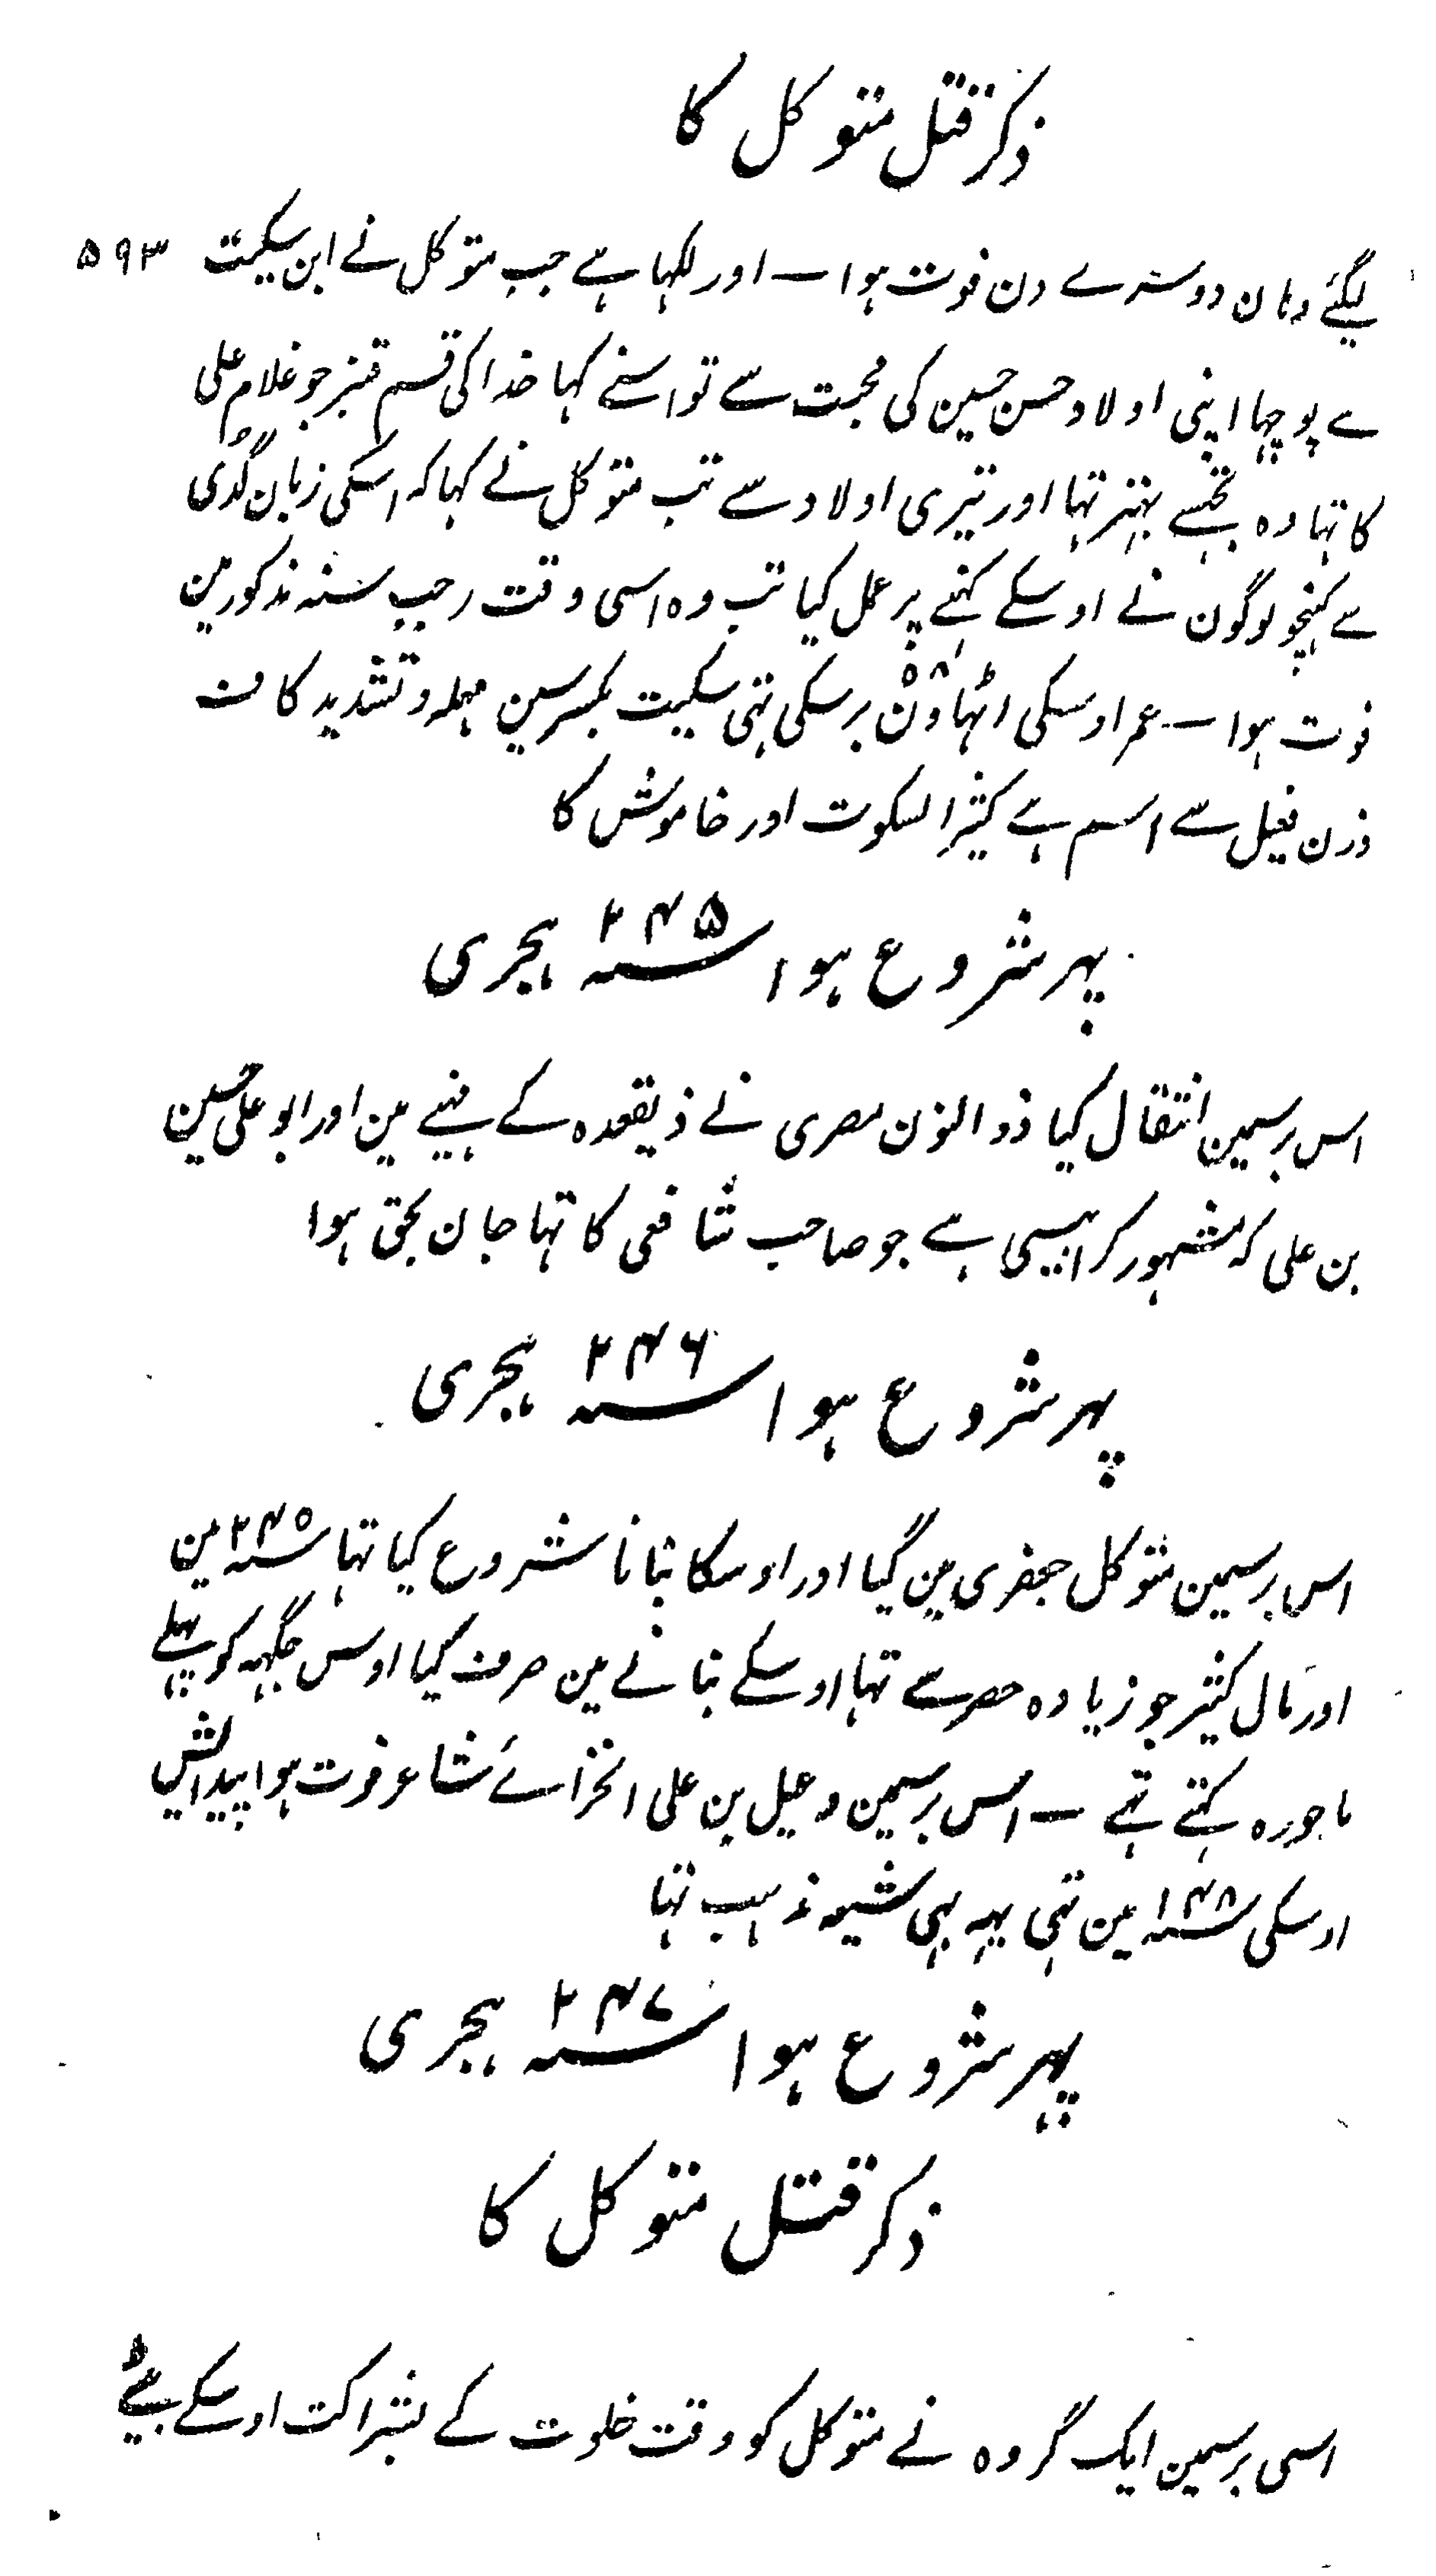 ذکر قتل متوکل کا
لیگئے وہان دوسرے دن فوت ہوا — اور لکہا ہے جب متوکل نے ابن سکیت ۵۹۳
سے پوچہا اپنی اولاد حسن حسین کی محبت سے تو اسنے کہا خدا کی قسم قنبر جو غلام علی
کا تہا وہ تجہسے بہتر تہا اور تیری اولاد سے تب متوکل نے کہا کہ اسکی زبان گُدّی
سے کہنچو لوگون نے اوسکے کہنے پر عمل کیا تب وہ اسی وقت رجب سنہ مذکور مین
فوت ہوا — عمر اوسکی اٹہاون ۵۸ برسکی تہی سکیت بکسر سین مہملہ و تشدید کاف
وزن فعیل سے اسم ہے کثیر السکوت اور خاموش کا
پہر شروع ہوا سنہ ۲۴۵ ہجری
اس برسمین انتقال کیا ذو النون مصری نے ذیقعدہ کے مہنیے مین اور ابو علی حسین
بن علی کہ مشہور کرابیسی ہے جو صاحب شافعی کا تہا جان بحق ہوا
پہر شروع ہوا سنہ ۲۴۶ ہجری
اس برسمین متوکل جعفری مین گیا اور اوسکا بنانا شروع کیا تہا سنہ ۲۴۵ مین
اور مال کثیر جو زیادہ حصر سے تہا اوسکے بنانے مین صرف کیا اوس جگہہ کو پہلے
ماحورہ کہتے تہے — اس برسمین دعبل بن علی الخزاعے شاعر فوت ہوا پیدائش
اوسکی سنہ ۱۴۸ مین تہی یہہ بہی شیعہ مذہب تہا
پہر شروع ہوا سنہ ۲۴۷ ہجری
ذکر قتل متوکل کا
اسی برسمین ایک گروہ نے متوکل کو وقت خلوت کے بشراکت اوسکے بیٹے